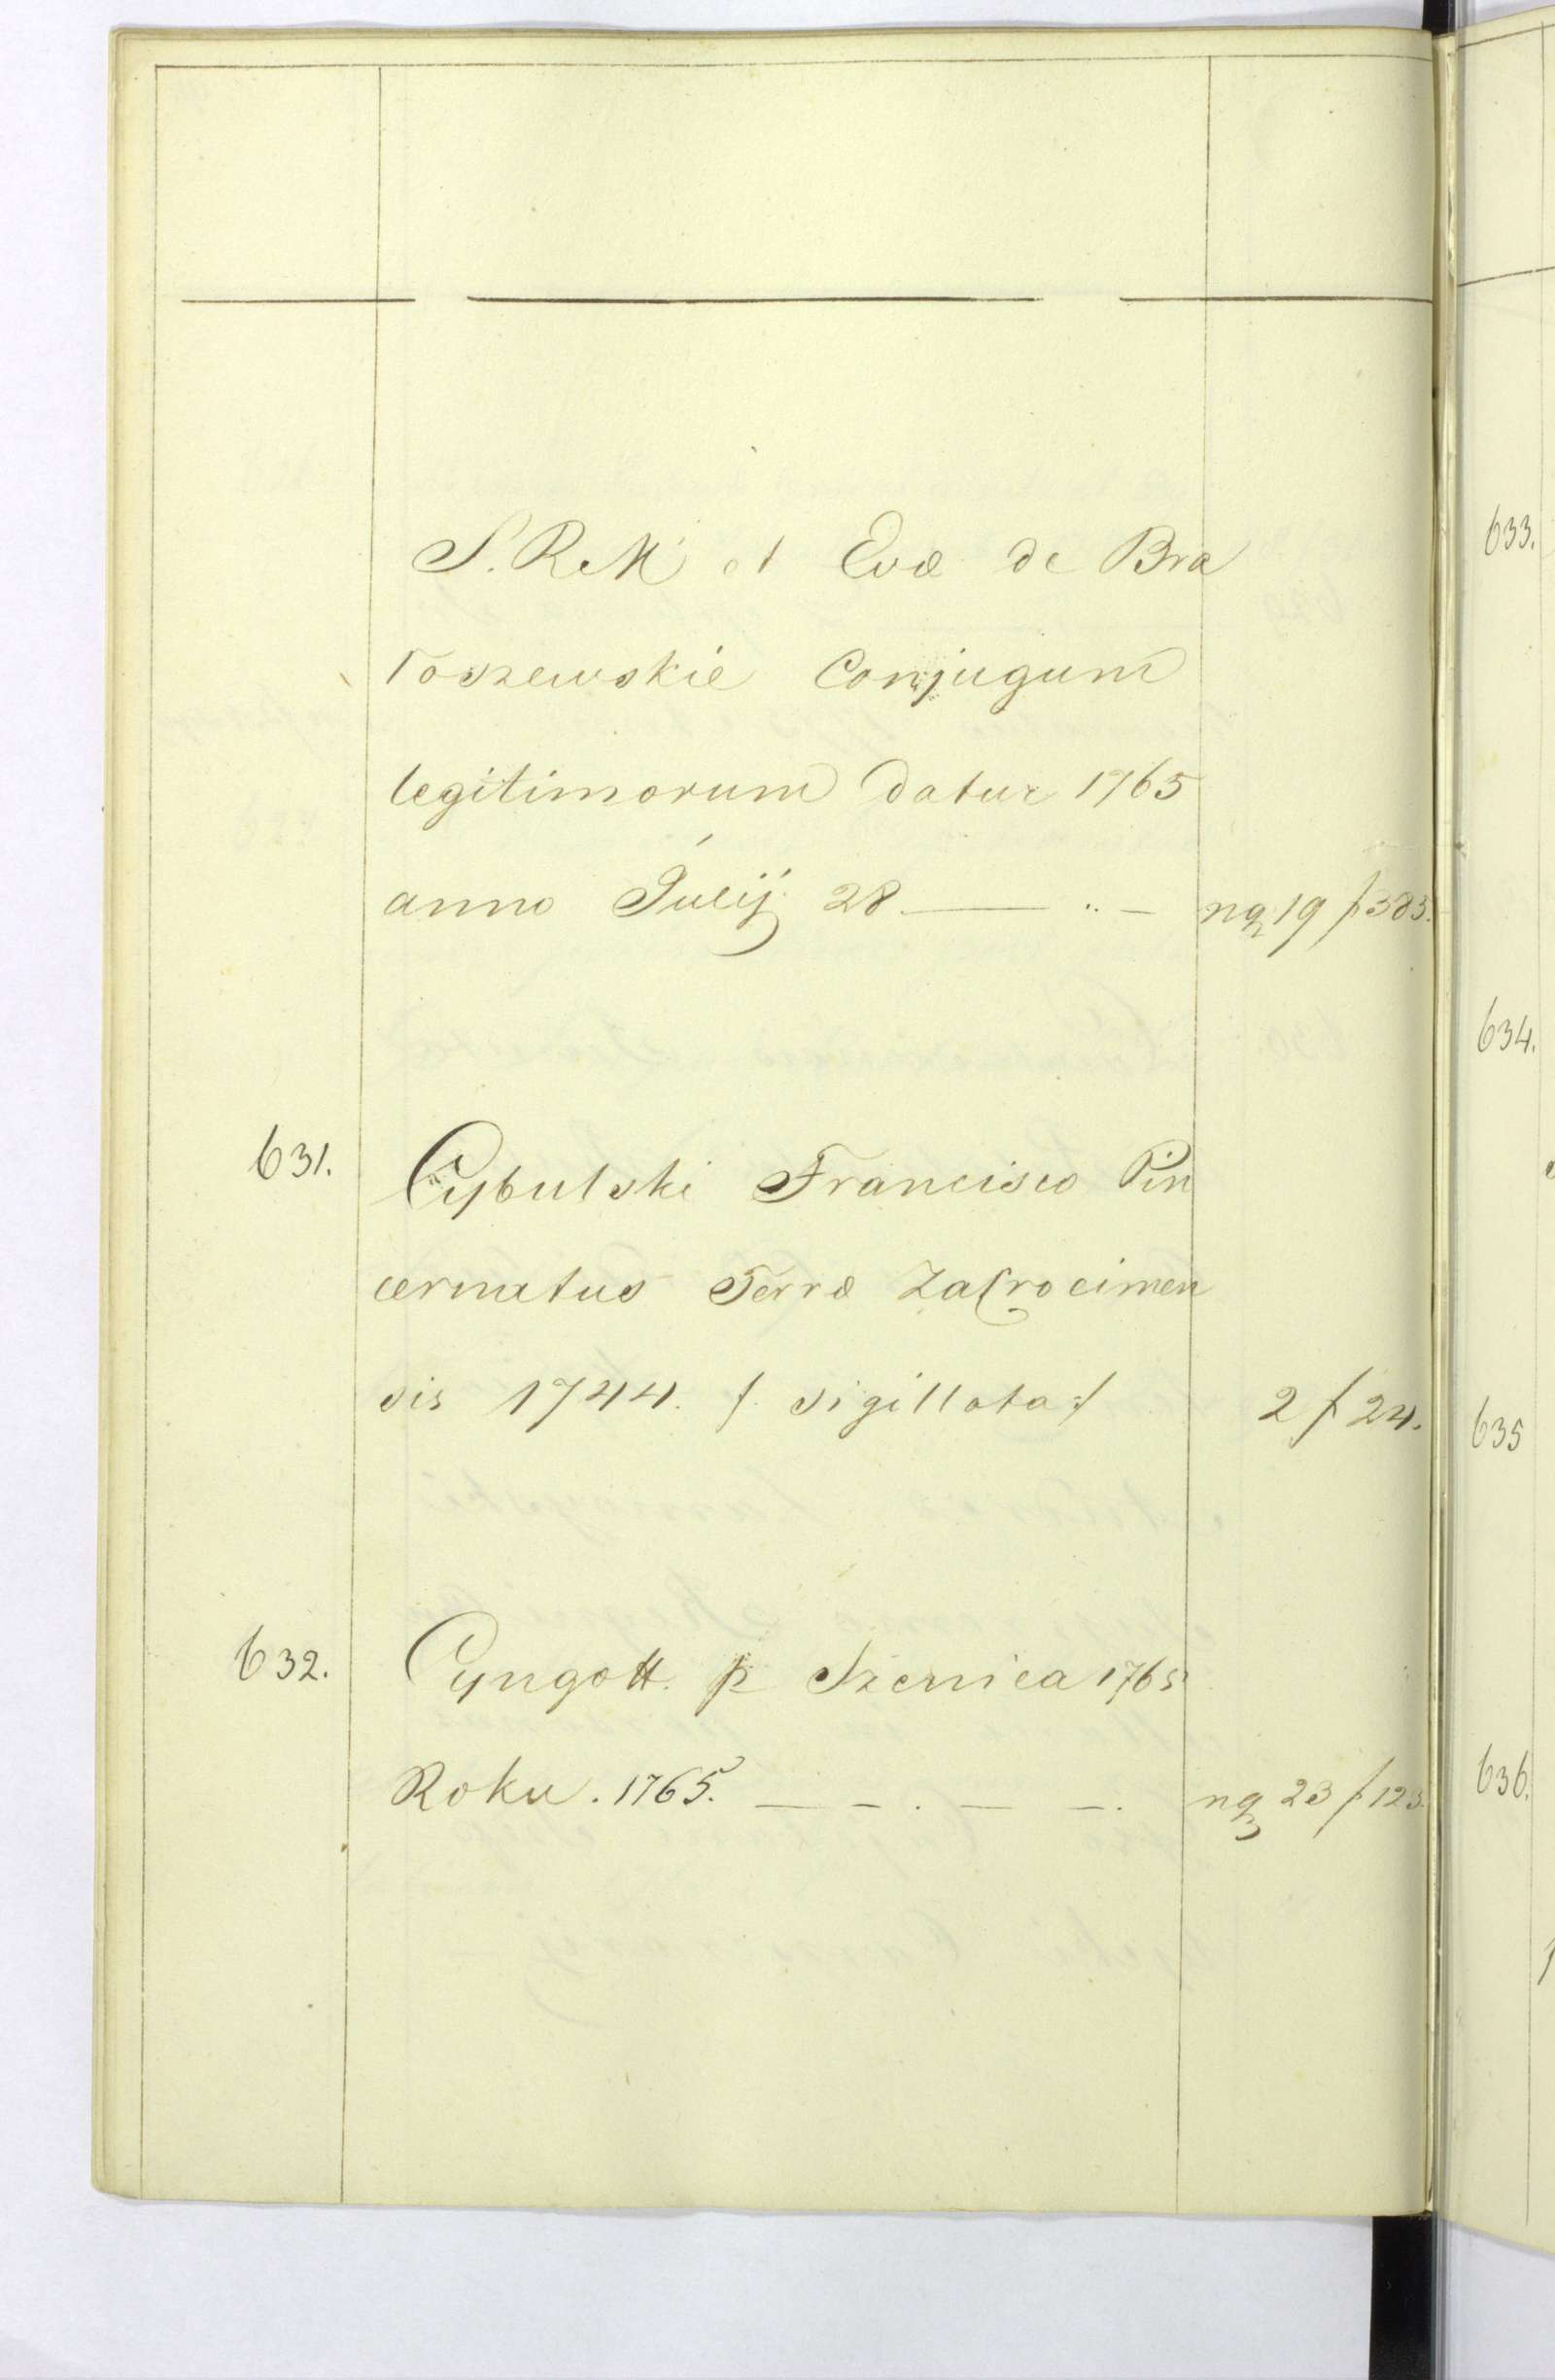 S. R M et Evæ de Bra
toszewskie Conjugum
legitimorum datur 1765
anno Julij 28 nq 19 f 383.
631. Cybulski Francisco Pin
cernatus Terræ Zakrocimen
sis 1744. /. sigillata ./ 2 f 24.
632. Cyngott. p Szernica 1765
Roku. 1765. nq 23 f 123.
633.
634.
635
636.